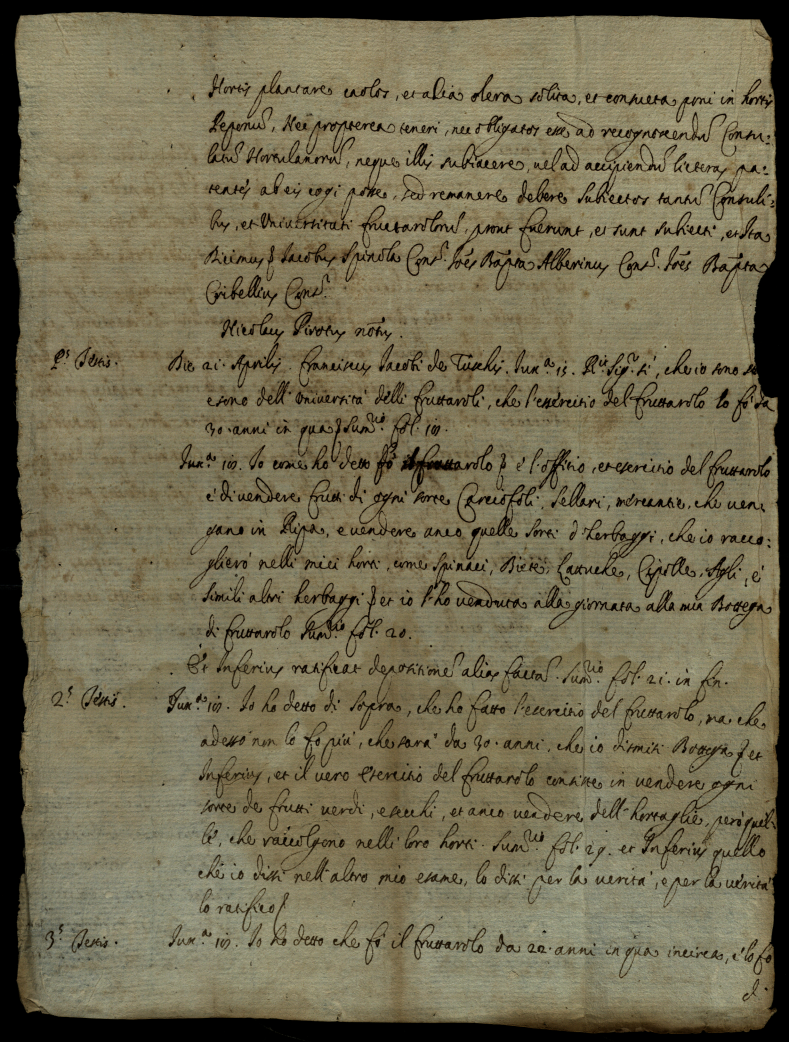 Hortis plantare caolos, et alia olera solita, et consueta poni in hortis
Peponū, Nec propterea teneri, nec obligatos esse ad recognoscendū Consu:
latū Hortulanorū, neque illis subiacere, vel ad accipiendū licteras pa:
tentes ab eis cogi posse, sed remanere debere subiectos tantū Consuli:
bus, et Universitati fruttarolorū, prout fuerunt, et sunt subiecti, et Ita
Dicimus Jacobus Spinola Cons. Joēs Bapta Alberinus Cons. Joēs Bapta
Cribellius Cons.
Nicolaus Pirotus notus.
Ps Testis. Die 21. Aprilis. Franciscus Jacobi de Tuschis. Sig.r sì, che io sono
e sono dell'Università delli fruttaroli, che l'essercitio del fruttarolo lo fò da
30. anni in qua Sum.rio fol. 19.
Io come ho detto fò il fruttarolo è l'offitio, et esercitio del fruttarolo
è di vendere frutti di ogni sorte Carciofoli, Sellari, mercantie, che ven:
gano in Ripa, e vendere anco quelle sorti d'herbaggi, che io racco:
glierò nelli miei horti, come spinaci, Biete, Lattuche, Cipolle, Agli, è
simili altri herbaggi et io l'ho venduta alla giornata alla mia Bottega
di fruttarolo Sum.rio fol. 20.
Et Inferius ratificat depositionē alias factā. Sum.rio fol. 21. in fin.
2.s Testis. Io ho detto di sopra, che ho fatto l'esercitio del fruttarolo, ma che
adesso non lo fo più, che sarà da 30. anni, che io dismisi Bottega et
Inferius, et il vero esercitio del fruttarolo consiste in vendere ogni
sorte de frutti verdi, e secchi, et anco vendere dell'hortaglie, però quel:
le, che raccolgono nelli loro horti. Sum.rio fol. 29. et Inferius quello
che io dissi nell'altro mio esame, lo dissi per la verità, e per la verità
lo ratifico
3.s Testis. Io ho detto che fò il fruttarolo da 22. anni in qua incirca, è lo fo
d.